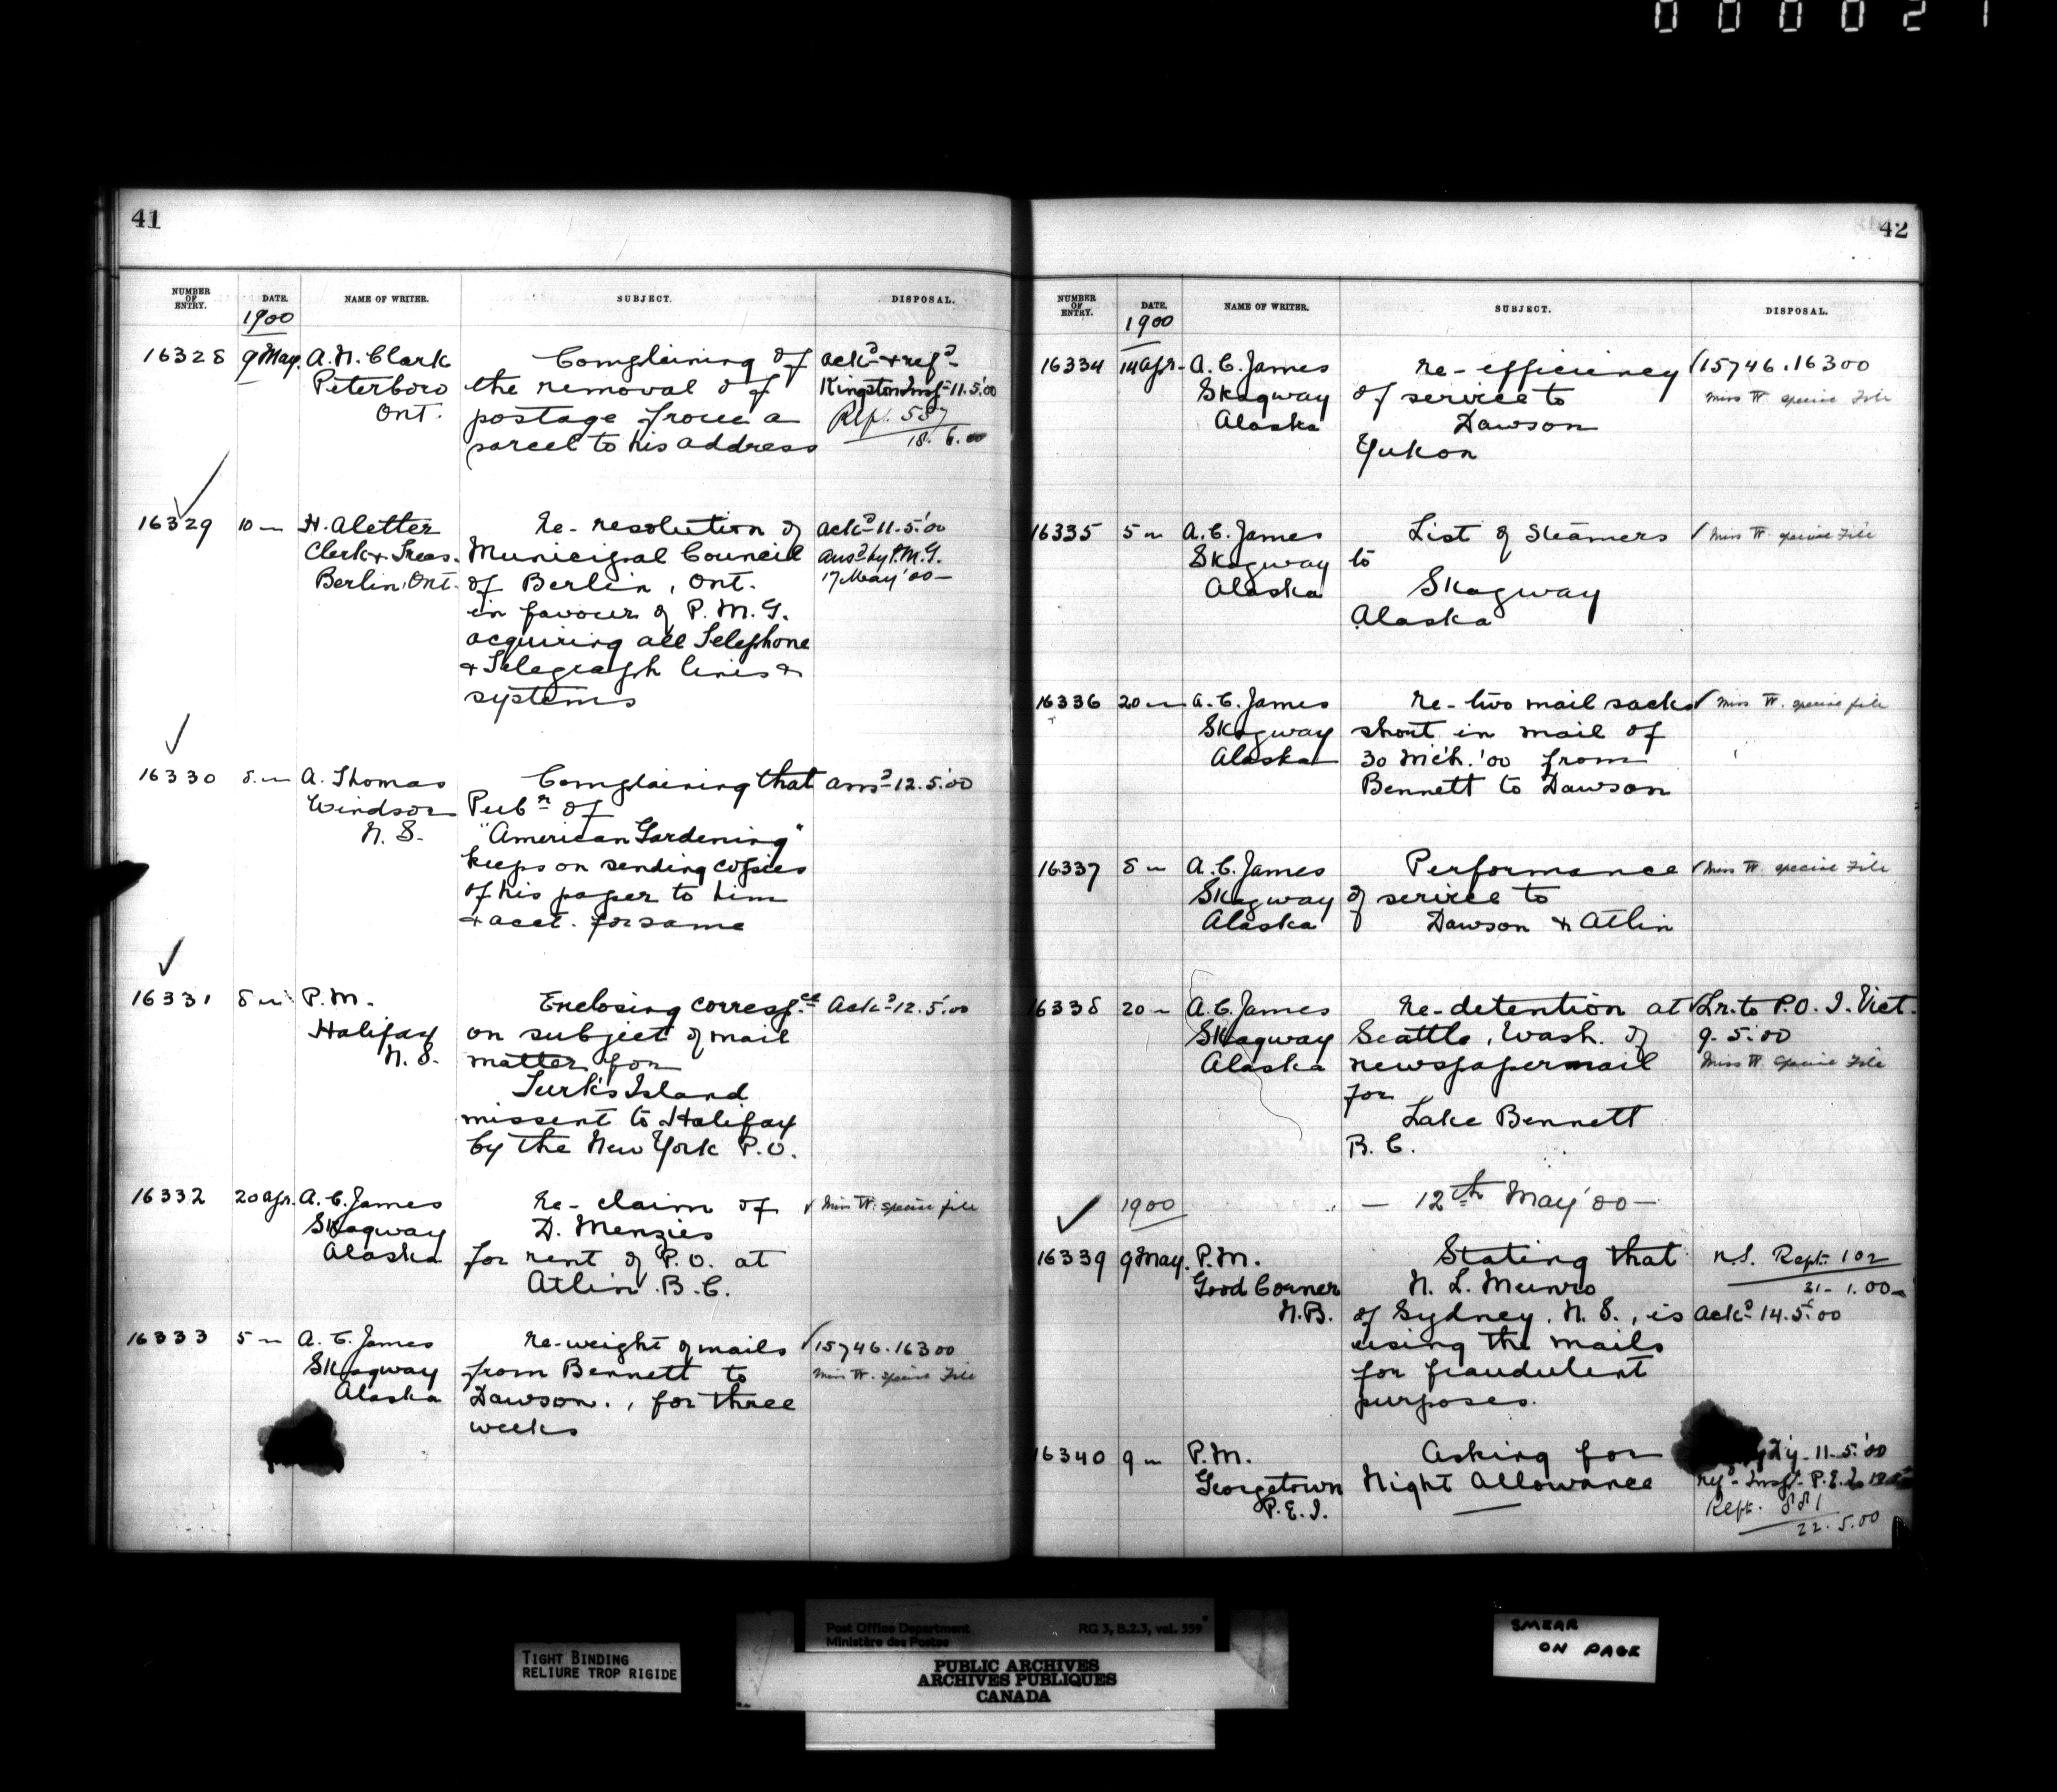 000021
41
NUMBER OF ENTRY. DATE. NAME OF WRITER. SUBJECT. DISPOSAL.
1900
16328 9 May. A. N. Clark Complaining of ackd & refd
Peterboro the removal of Kingston Insp 11.5.'00
Ont. postage from a Rep. 557
parcel to his address 18.6.00
16329 10 " H. Aletter Re- resolution of ackd 11.5.'00
Clerk & Treas. Municipal Council ansd by P.M.G.
Berlin, Ont. of Berlin, Ont. 17 May '00
in favour of P.M.G.
acquiring all Telephone
& Telegraph lines &
systems
16330 8 " A. Thomas Complaining that ansd 12.5.'00
Windsor Pubr of
N.S. "American Gardening"
keeps on sending copies
of his paper to him
& acct. for same
16331 8 " P.M. Enclosing correspce Ackd 12.5.'00
Halifax on subject of mail
N.S. matter for
Turk's Island
missent to Halifax
by the New York P.O.
16332 20 Apr. A. C. James Re- claim of Miss W. special file
Skagway D. Menzies
Alaska for rent of P.O. at
Atlin B.C.
16333 5 " A. C. James Re- weight of mails 15746.16300
Skagway from Bennett to Miss W. special File
Alaska Dawson., for three
weeks
42
NUMBER OF ENTRY. DATE. NAME OF WRITER. SUBJECT. DISPOSAL.
1900
16334 14 Apr. A. C. James Re- efficiency 15746.16300
Skagway of service to Miss W special File
Alaska Dawson
Yukon
16335 5 " A. C. James List of Steamers Miss W. special File
Skagway to
Alaska Skagway
Alaska
16336 20 " A. C. James Re- two mail sacks Miss W. special file
Skagway short in mail of
Alaska 30 Mch. '00 from
Bennett to Dawson
16337 8 " A. C. James Performance Miss W special File
Skagway of service to
Alaska Dawson & Atlin
16338 20 " A. C. James Re- detention at Lr. to P.O.I. Vict.
Skagway Seattle, Wash. of 9.5.'00
Alaska newspaper mail Miss W special File
for
Lake Bennett
B.C.
1900 — 12th May '00 —
16339 9 May. P.M. Stating that N.S. Rept. 102
Good Corner N. L. Munro 31.1.00
N.B. of Sydney, N.S., is Ackd 14.5.'00
using the mails
for fraudulent
purposes.
16340 9 " P.M. Asking for 11.5.'00
Georgetown Night Allowance refd Inspr P.E.I.
P.E.I. Rept. 881
22.5.00
TIGHT BINDING
RELIURE TROP RIGIDE
Post Office Department RG 3, B.2.3, vol. 559
Ministère des Postes
PUBLIC ARCHIVES
ARCHIVES PUBLIQUES
CANADA
SMEAR
ON PAGE